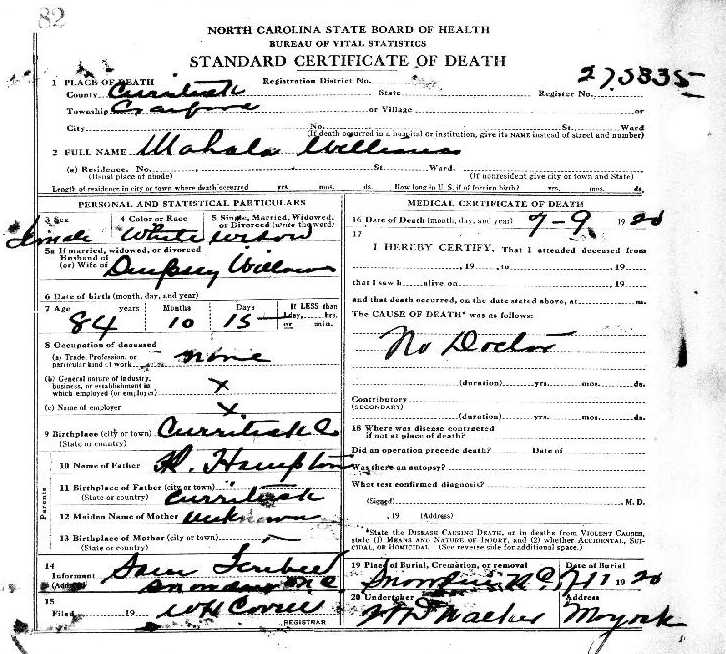 82
NORTH CAROLINA STATE BOARD OF HEALTH
BUREAU OF VITAL STATISTICS
STANDARD CERTIFICATE OF DEATH
1 PLACE OF DEATH Registration District No.
County Currituck State Register No. 275835
Township Crawford or Village or
City No. St. Ward
(If death occurred in a hospital or institution, give its NAME instead of street and number)
2 FULL NAME Mahala Williams
(a) Residence. No. St. Ward.
(Usual place of abode) (If nonresident give city or town and State)
Length of residence in city or town where death occurred yrs. mos. ds. How long in U. S., if of foreign birth? yrs. mos. ds.
PERSONAL AND STATISTICAL PARTICULARS
3 Sex 4 Color or Race 5 Single, Married, Widowed, or Divorced (write the word)
Female White
5a If married, widowed, or divorced
Husband of
(or) Wife of Dempsey Williams
6 Date of birth (month, day, and year)
7 Age years Months Days If LESS than
1 day, hrs.
or min.
84 10 15
8 Occupation of deceased
(a) Trade, Profession, or
particular kind of work none
(b) General nature of industry,
business, or establishment in
which employed (or employer) x
(c) Name of employer x
9 Birthplace (city or town) Currituck Co
(State or country)
Parents
10 Name of Father Hampton
11 Birthplace of Father (city or town)
(State or country) Currituck
12 Maiden Name of Mother unknown
13 Birthplace of Mother (city or town)
(State or country)
14
Informant
(Address) N.C.
15
Filed 19
REGISTRAR
MEDICAL CERTIFICATE OF DEATH
16 Date of Death (month, day, and year) 7-9 1920
17
I HEREBY CERTIFY, That I attended deceased from
, 19 , to , 19
that I saw h alive on , 19
and that death occurred, on the date stated above, at m.
The CAUSE OF DEATH* was as follows:
No Doctor
(duration) yrs. mos. ds.
Contributory
(SECONDARY)
(duration) yrs. mos. ds.
18 Where was disease contracted
if not at place of death?
Did an operation precede death? Date of
Was there an autopsy?
What test confirmed diagnosis?
(Signed) M. D.
, 19 (Address)
*State the DISEASE CAUSING DEATH, or in deaths from VIOLENT CAUSES,
state (1) MEANS AND NATURE OF INJURY, and (2) whether ACCIDENTAL, SUI-
CIDAL, or HOMICIDAL. (See reverse side for additional space.)
19 Place of Burial, Cremation, or removal Date of Burial
N.C. 7-11 1920
20 Undertaker Address
Walker Moyock